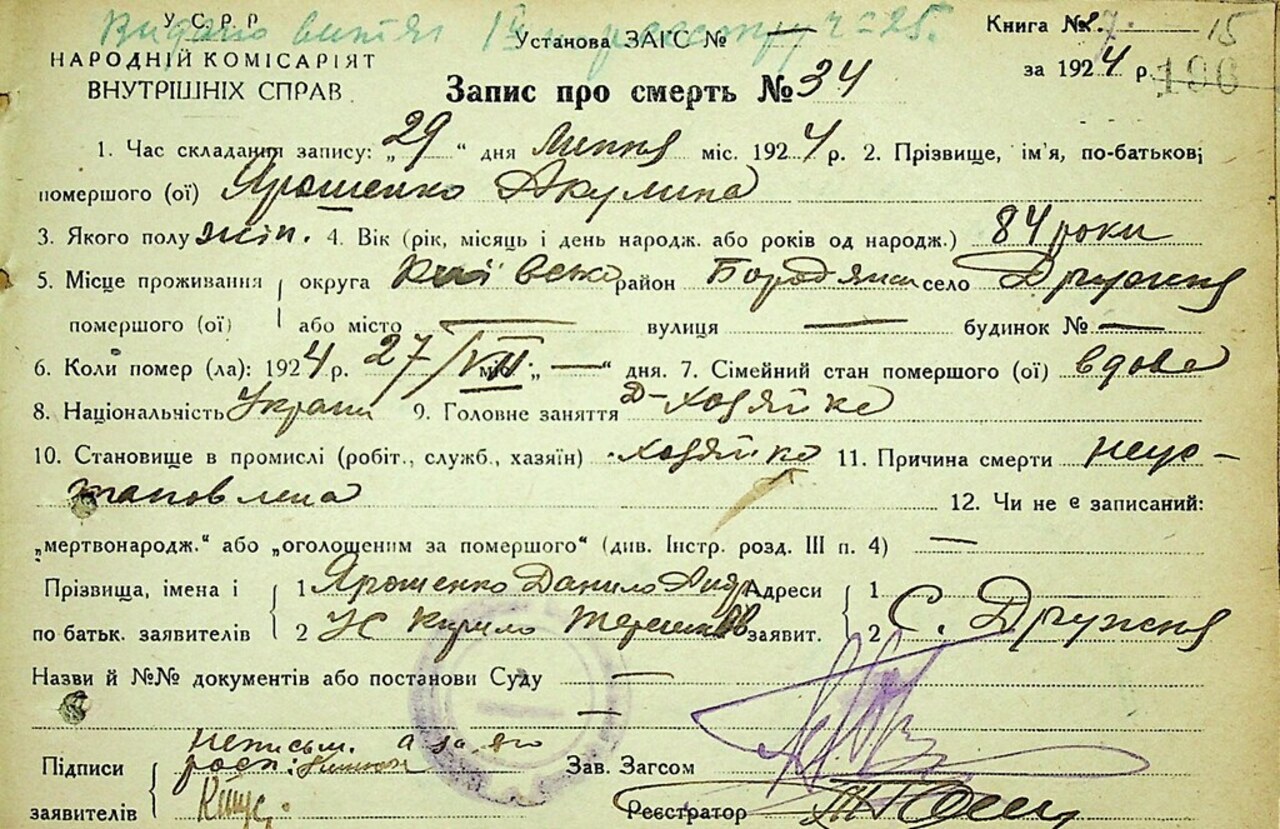 У.С.Р.Р.
Видано витяг
Установа ЗАГС № —
Книга № 7. 15
НАРОДНІЙ КОМІСАРІЯТ
ВНУТРІШНІХ СПРАВ
за 1924 р. 196
Запис про смерть № 34
1. Час складання запису: „29“ дня липня міс. 1924 р. 2. Прізвище, ім'я, по-батькові
помершого (ої) Ярошенко Акулина
3. Якого полу жін. 4. Вік (рік, місяць і день народж. або років од народж.) 84 роки
5. Місце проживання округа Київська район Бородянськ село Дружня
помершого (ої) або місто — вулиця — будинок № —
6. Коли помер (ла): 1924 р. 27/VII міс. „—“ дня. 7. Сімейний стан помершого (ої) вдова
8. Національність Україн 9. Головне заняття Д-хазяйка
10. Становище в промислі (робіт., служб., хазяїн) хазяйка 11. Причина смерти неус-
тановлена 12. Чи не є записаний:
„мертвонародж.“ або „оголошеним за помершого“ (див. Інстр. розд. III п. 4) —
Прізвища, імена і 1 Ярошенко Данило Андр Адреси 1
по батьк. заявителів 2 Кирило заявит. 2 С. Дружня
Назви й №№ документів або постанови Суду —
—
неписьм. а за його
Підписи росп: Зав. Загсом
заявителів Реєстратор